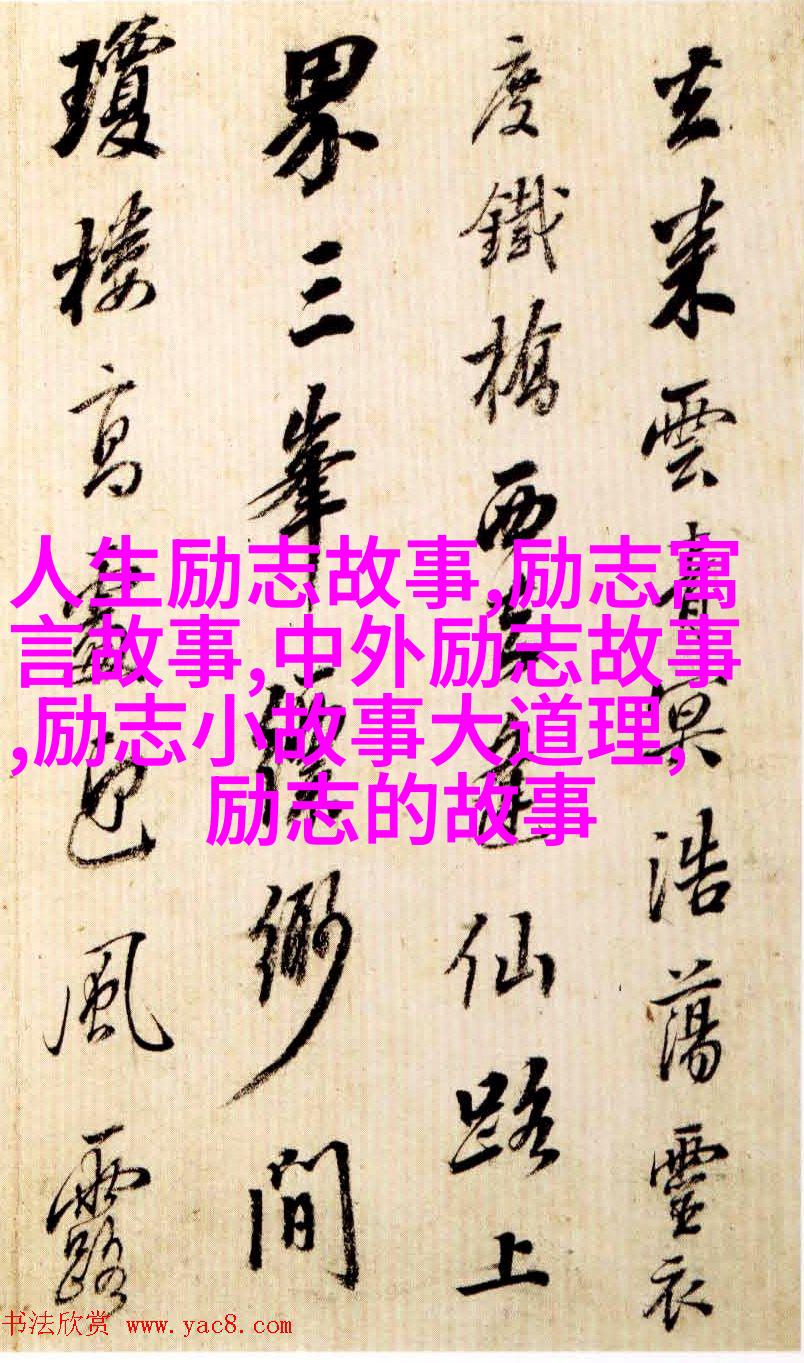 来雲冥浩蕩靈衣
度鐵橋西仙路上
界三峯緲間
瓊樓高風露
人生励志故事,励志寓
言故事,中外励志故事
,励志小故事大道理,
励志的故事
书法欣赏 www.yac8.com